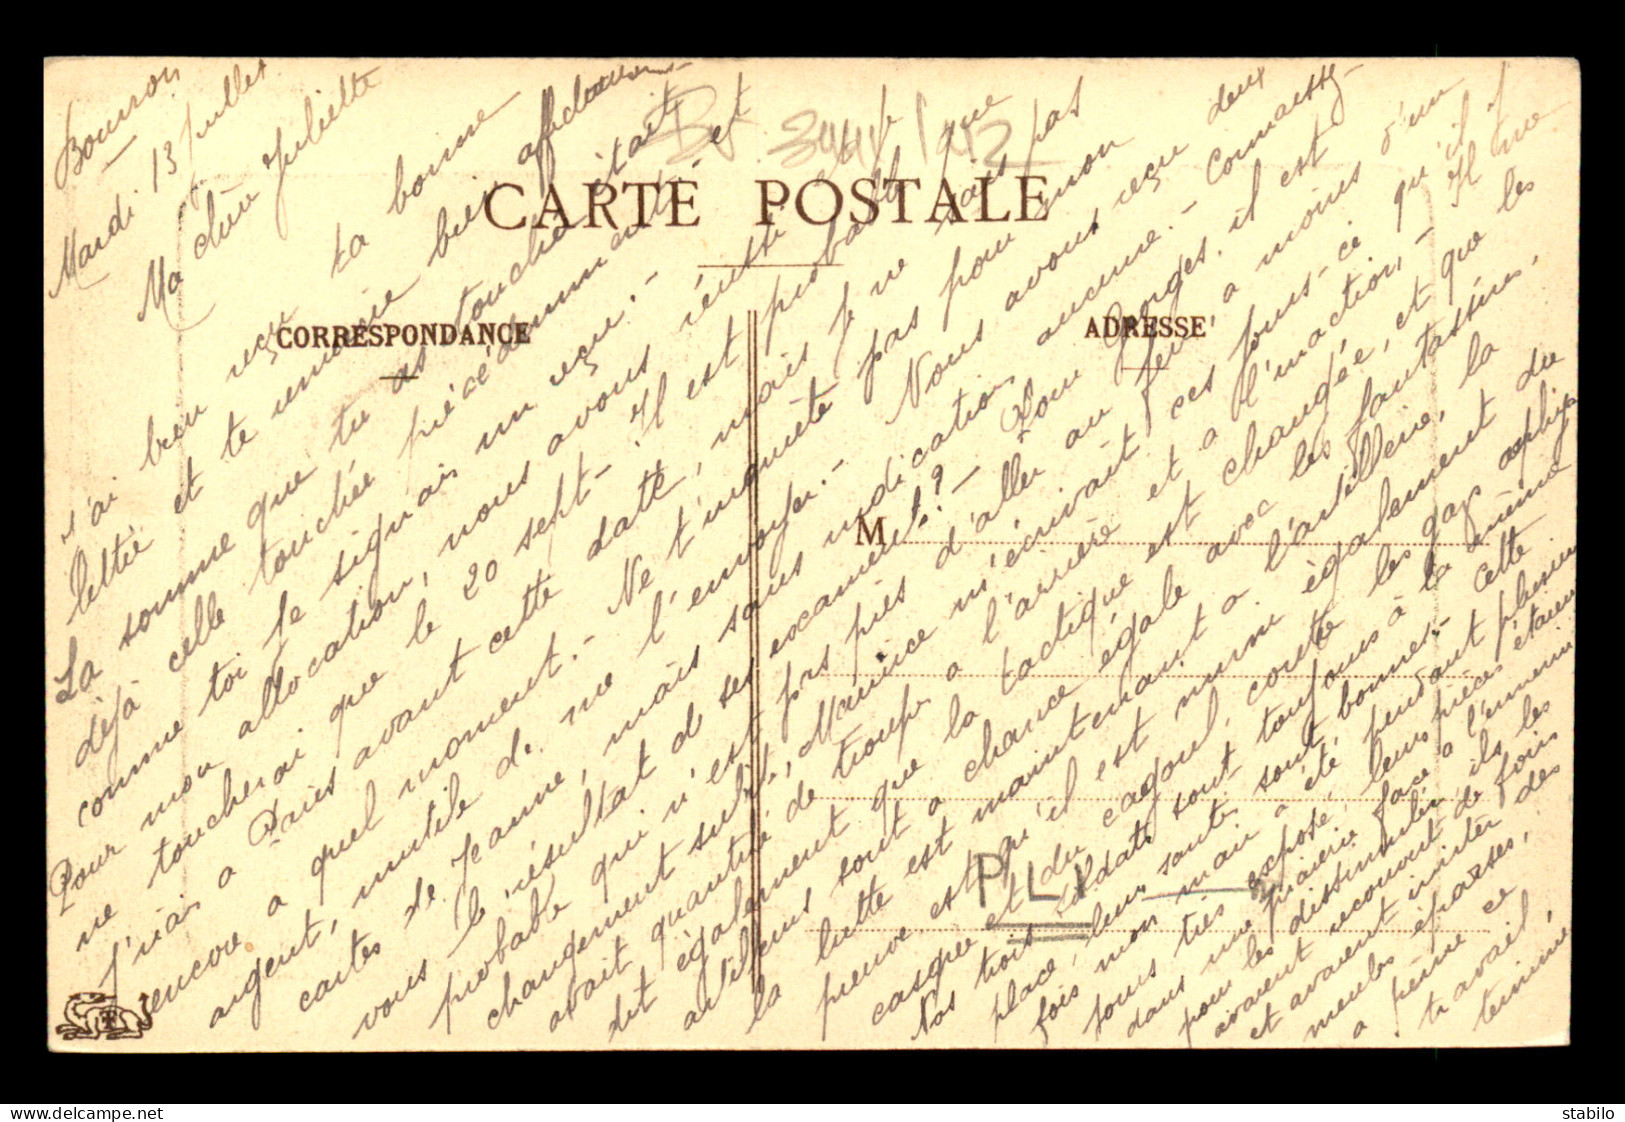 Bourron
Mardi 13 juillet
Ma chère Juliette
J'ai bien reçu ta bonne
lettre et te remercie bien affectueusement
La somme que tu as touchée était
déjà celle touchée précédemment et
comme toi je signais un reçu.-
Pour mon allocation, nous avons réussi et je
ne toucherai que le 20 sept- Il est probable que
j'irais à Paris avant cette date, mais je ne sais pas
encore à quel moment.- Ne t'inquiète pas pour mon
argent, inutile de me l'envoyer.- Nous avons reçu deux
cartes de Jeanne, mais sans indication aucune.- Connaissez
vous le résultat de ses examens?- Pour Georges, il est
probable qu'il n'est pas près d'aller au feu à moins d'un
changement subit, Maurice m'écrivait ces jours-ci qu'il y
avait quantité de troupes à l'arrière et à l'inaction,- Il me
dit également que la tactique est changée, et que les
artilleurs sont à chance égale avec les fantassins.
la lutte est maintenant à l'artillerie, la
preuve est qu'il est muni également du
casque et du cagoul contre les gaz asphyx
Nos trois soldats sont toujours à la même
place, leurs santés sont bonnes.- Cette
fois mon mari a été pendant plusieurs
jours très exposé, leurs pièces étaient
dans une prairie face à l'ennemi
pour les dissimuler ils les
avaient recouvert de foin
et avaient imiter des
meules éparses,
à peine ce
travail
terminé,
CARTE POSTALE
CORRESPONDANCE
ADRESSE
M
PLI
© delcampe.net
stabilo